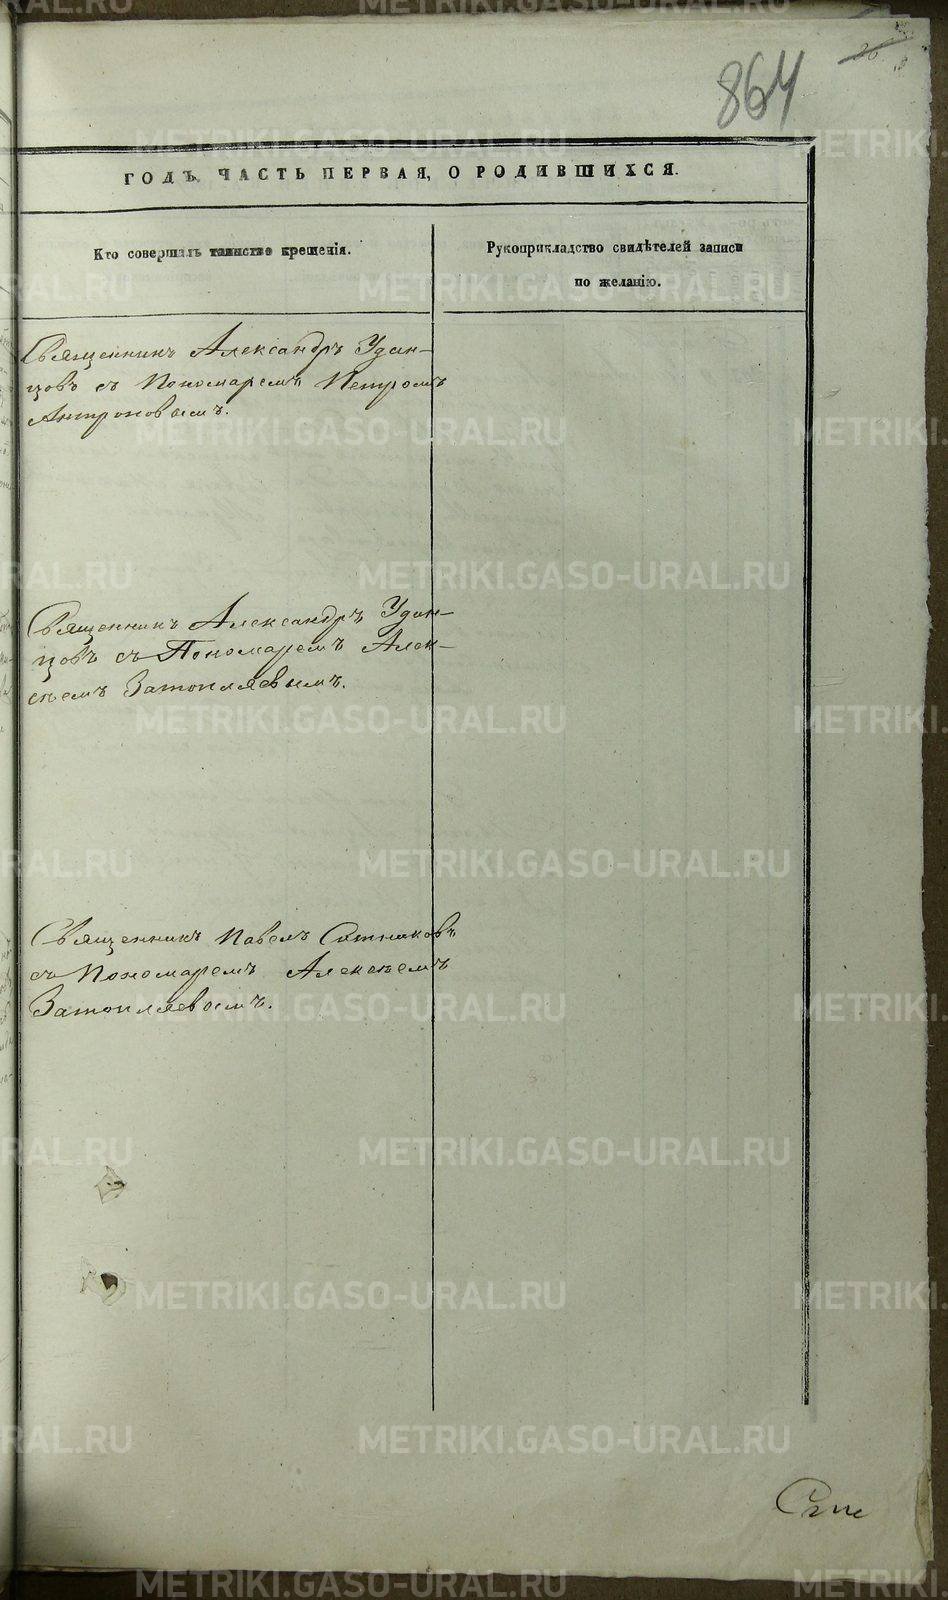 864
26
ГОДЪ. ЧАСТЬ ПЕРВАЯ, О РОДИВШИХСЯ.
Кто совершалъ таинство крещенія.
Рукоприкладство свидѣтелей записи
по желанію.
Священникъ Александръ Удин-
цовъ съ Пономаремъ Петромъ
Антроповымъ.
Священникъ Александръ Удин-
цовъ съ Пономаремъ Алек-
сѣемъ Затопляевымъ.
Священникъ Павелъ Сотниковъ
съ Пономаремъ Алексѣемъ
Затопляевымъ.
METRIKI.GASO-URAL.RU